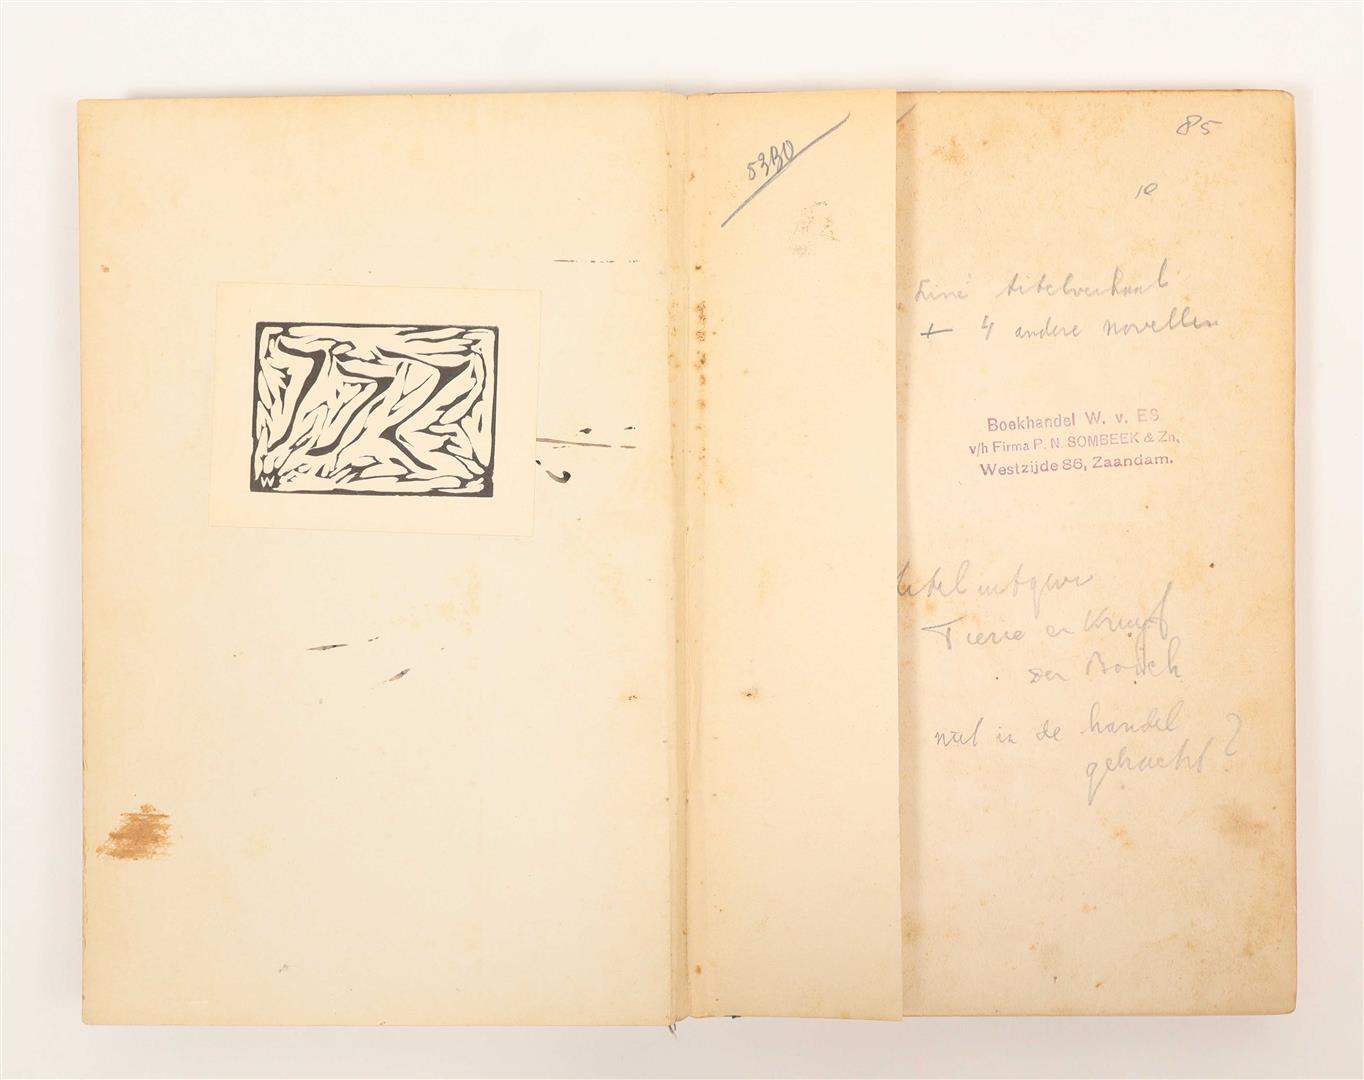 W
5390
85
10
titelverhaal
+ 4 andere novellen
Boekhandel W. v. ES
v/h Firma P. N. SOMBEEK & Zn,
Westzijde 86, Zaandam.
Tierie en Kruyt
niet in de handel
gebracht?